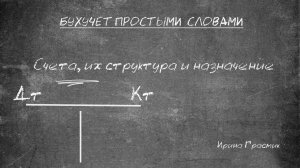 БУХУЧЕТ ПРОСТЫМИ СЛОВАМИ
Счета, их структура и назначение
Дт Кт
Ирина